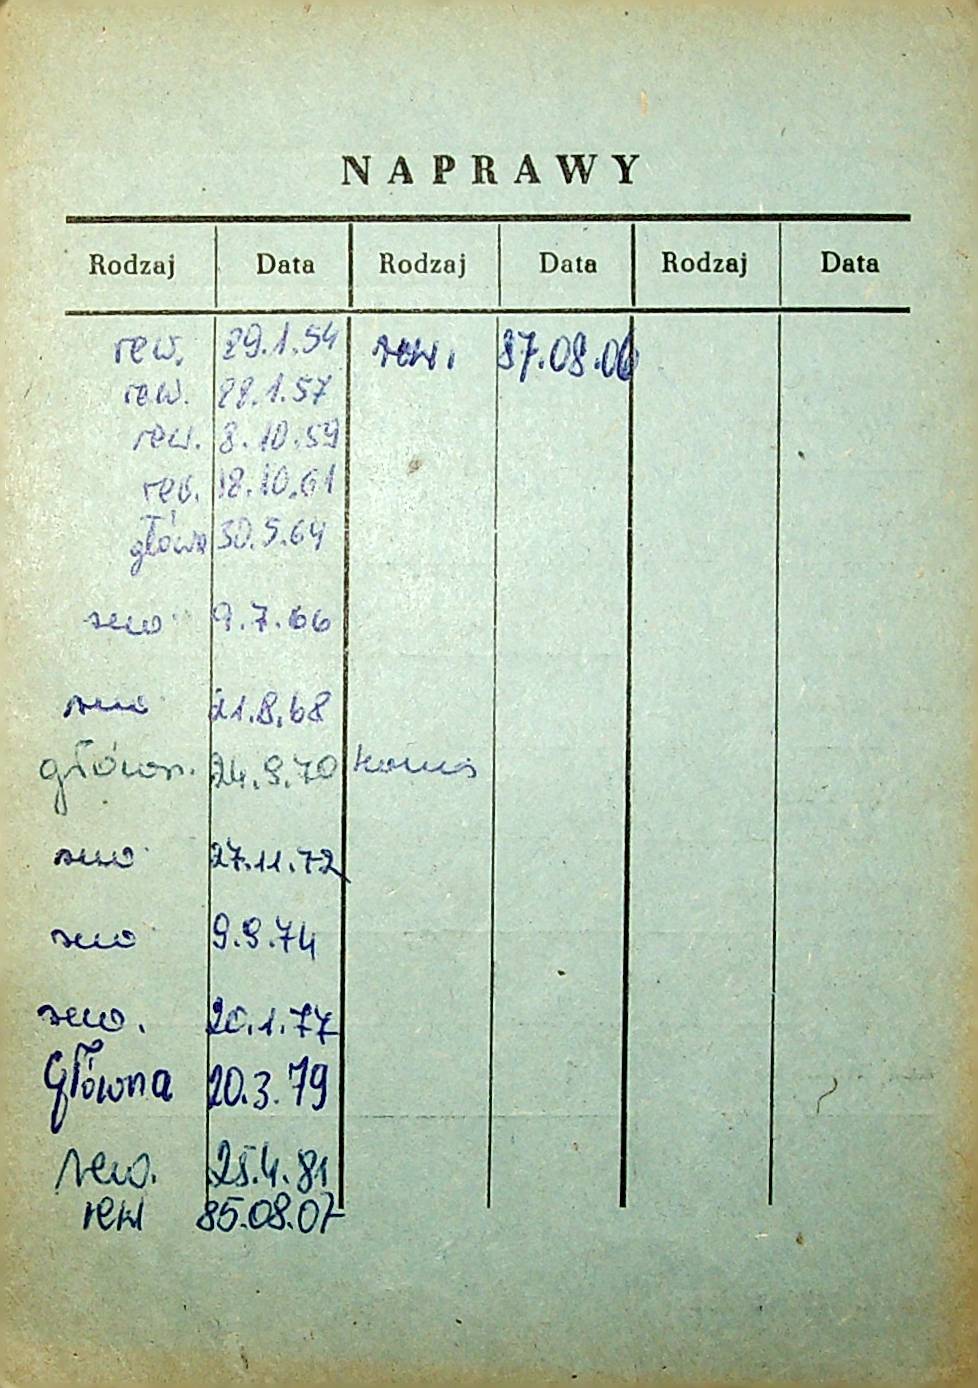 NAPRAWY
Rodzaj Data Rodzaj Data Rodzaj Data
rew. 29.1.54 rew. 87.08.06
rew. 28.1.57
rew. 8.10.59
rew. 18.10.61
główna 30.5.64
rew 9.7.66
rew 21.8.68
główn. 24.9.70
rew 27.11.72
rew 9.9.74
rew. 20.1.77
Główna 20.3.79
rew. 25.4.81
rew 85.08.07